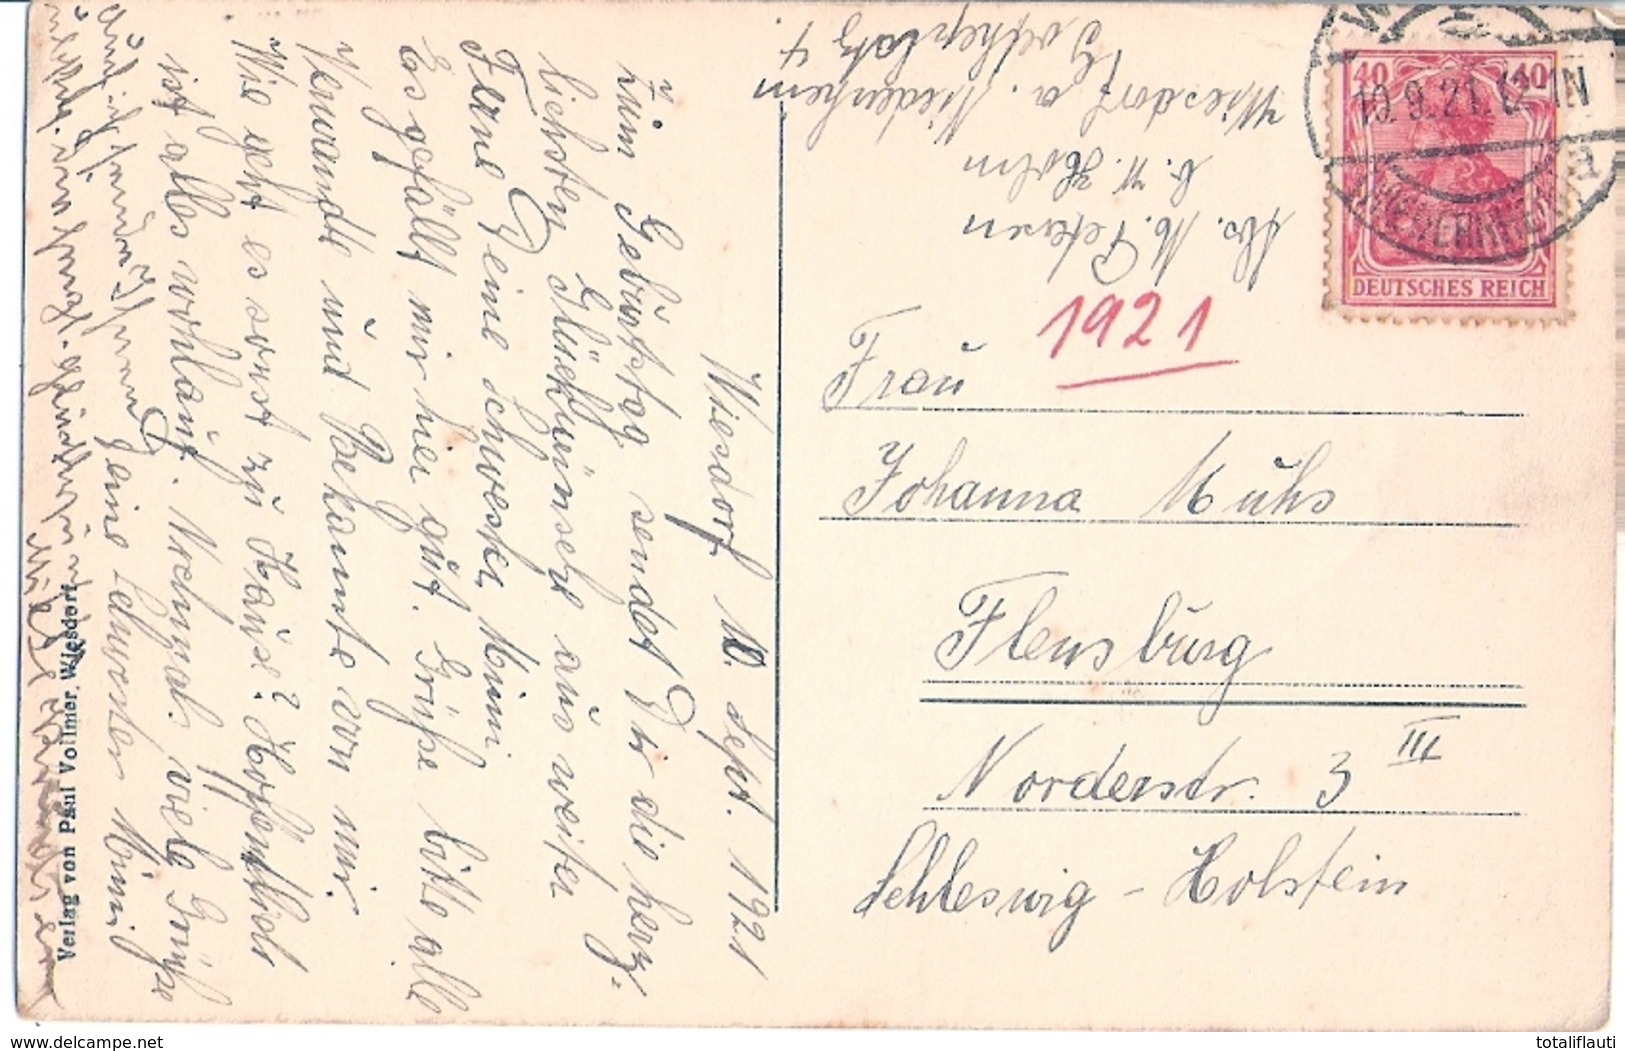 Wiesdorf 10. Sept. 1921
Zum Geburtstag sendet Dir die herz-
lichsten Glückwünsche aus weiter
Ferne Deine Schwester Minni
Es gefällt mir hier gut. Grüße bitte alle
Verwandte und Bekannte von mir.
Wie geht es sonst zu Hause? Hoffentlich
ist alles wohlauf. Nochmals viele Grüße
Deine Schwester Minni
Auch ich sende Ihnen
Verlag von Paul Vollmer, Wiesdorf.
Abs. M. Petersen
b. W. Holm
Wiesdorf a. Niederrhein
Goetheplatz 4
1921
40 40
10.9.21. 12-1N
DEUTSCHES REICH
Frau
Johanna Muhs
Flensburg
Norderstr. 3 III
Schleswig-Holstein
delcampe.net
totaliflauti